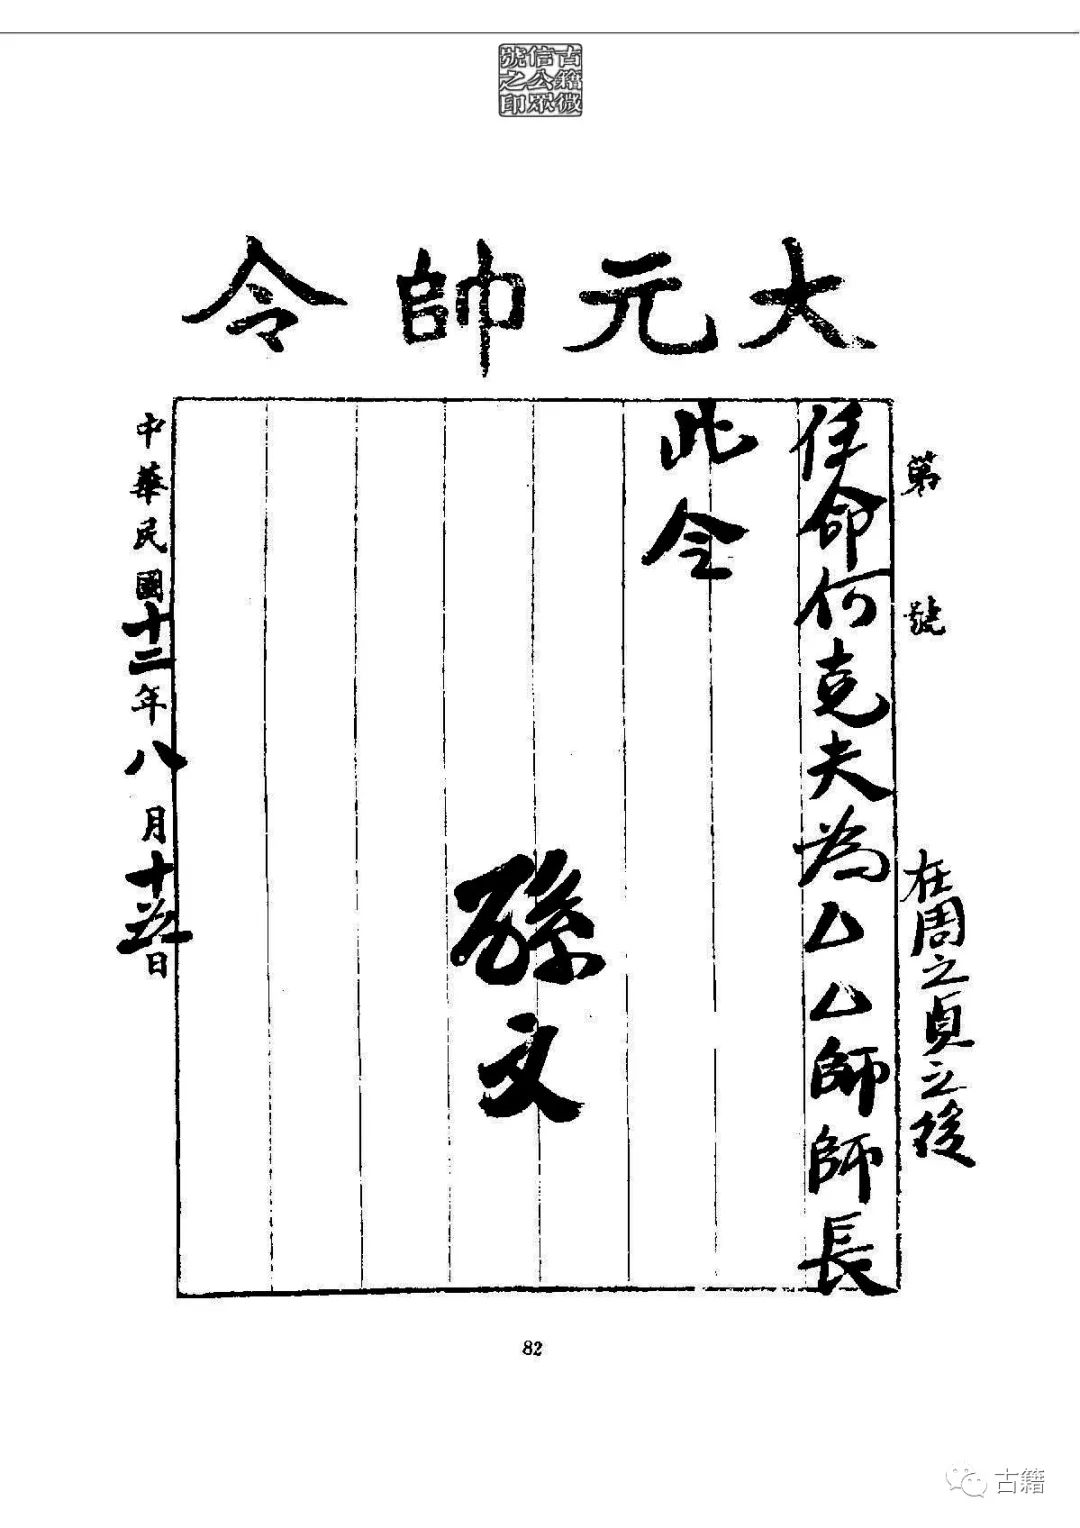 古籍微
信公眾
號之印
大元帥令
第 號
在周之貞之後
任命何克夫為厶厶師師長
此令
孫文
中華民國十二年八月十日
82
古籍